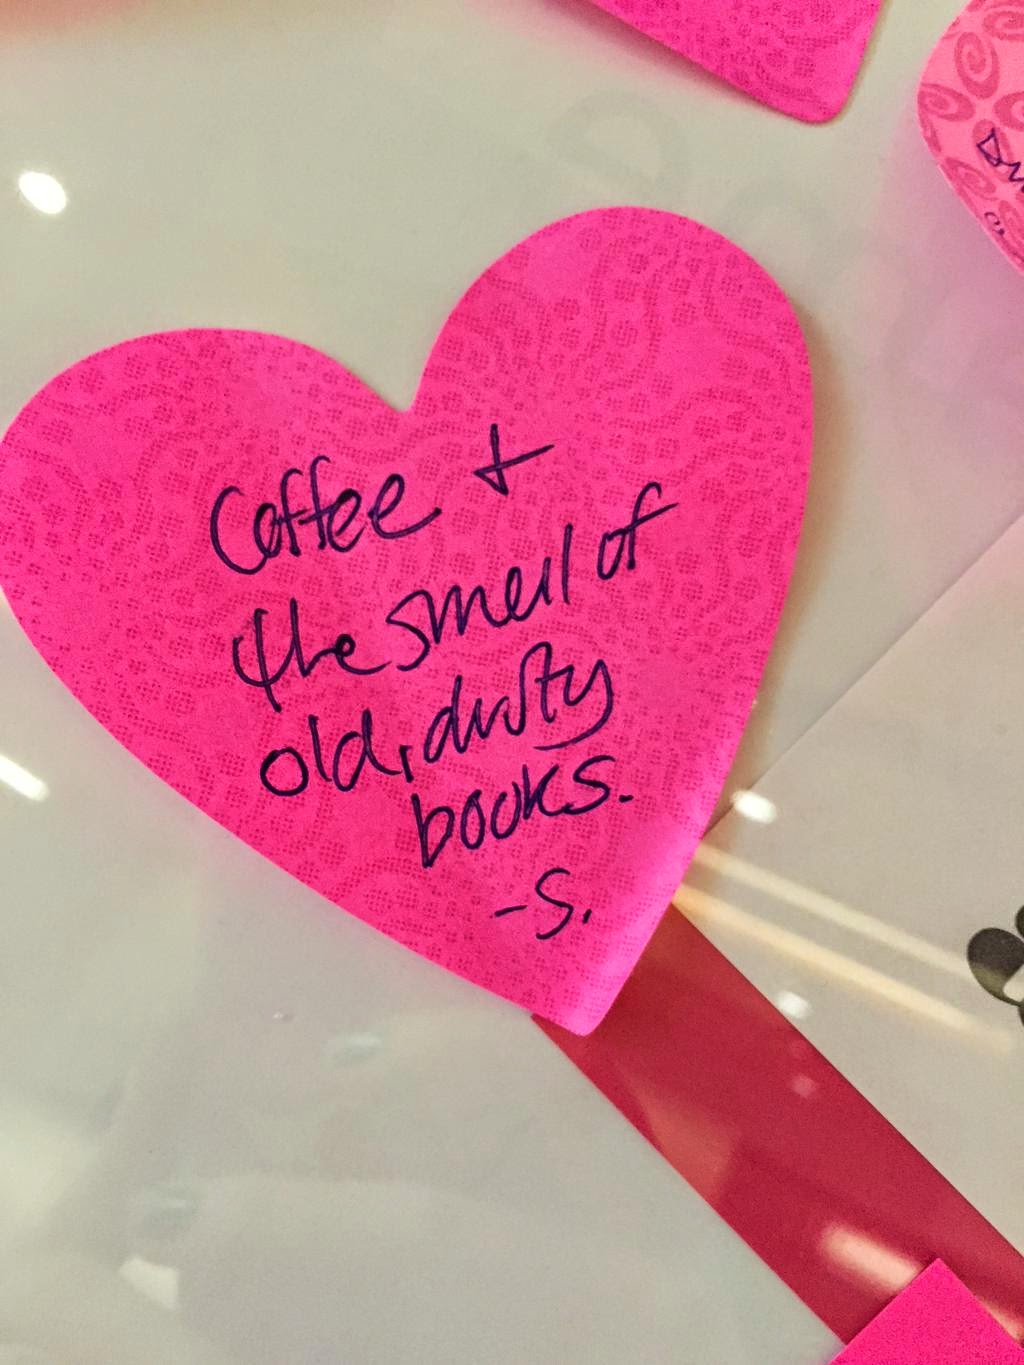 Coffee +
the smell of
old, dusty
books.
-S.